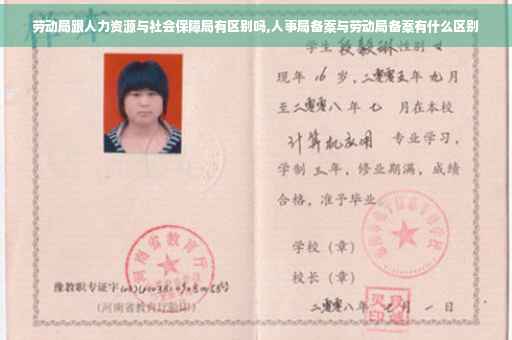 劳动局跟人力资源与社会保障局有区别吗,人事局备案与劳动局备案有什么区别
学生 段毅琳 性别 女
现年 16 岁,二零零五年 九月
至二零零八年 七 月在本校
计算机应用 专业学习,
学制 三 年,修业期满,成绩
合格,准予毕业。
学校(章)
校长(章)
二零零八年 七 月 一 日
河南省教育厅
豫教职专证字
(河南省教育厅验印)